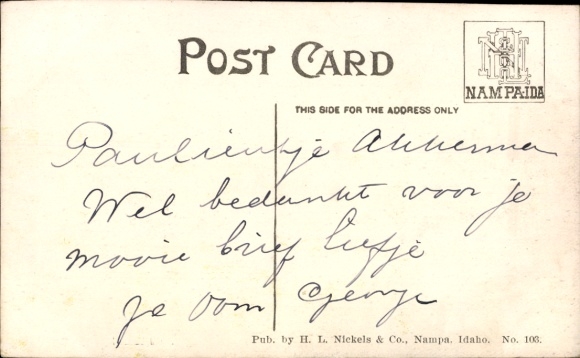 POST CARD
NAMPA-IDA
THIS SIDE FOR THE ADDRESS ONLY
Paulientje Akkerman
Wel bedankt voor je
mooie brief liefje
Je Oom George
Pub. by H. L. Nickels & Co., Nampa, Idaho. No. 103.